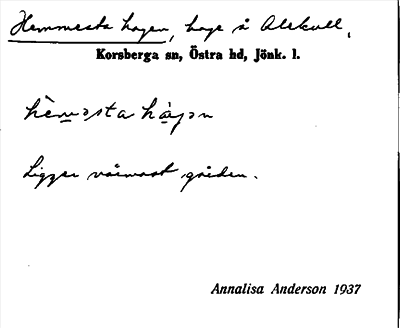 Hemmesta hagen, hage å Alskull,
Korsberga sn, Östra hd, Jönk. l.
hèmǝsta hàgǝn
Ligger närmast gården.
Annalisa Anderson 1937